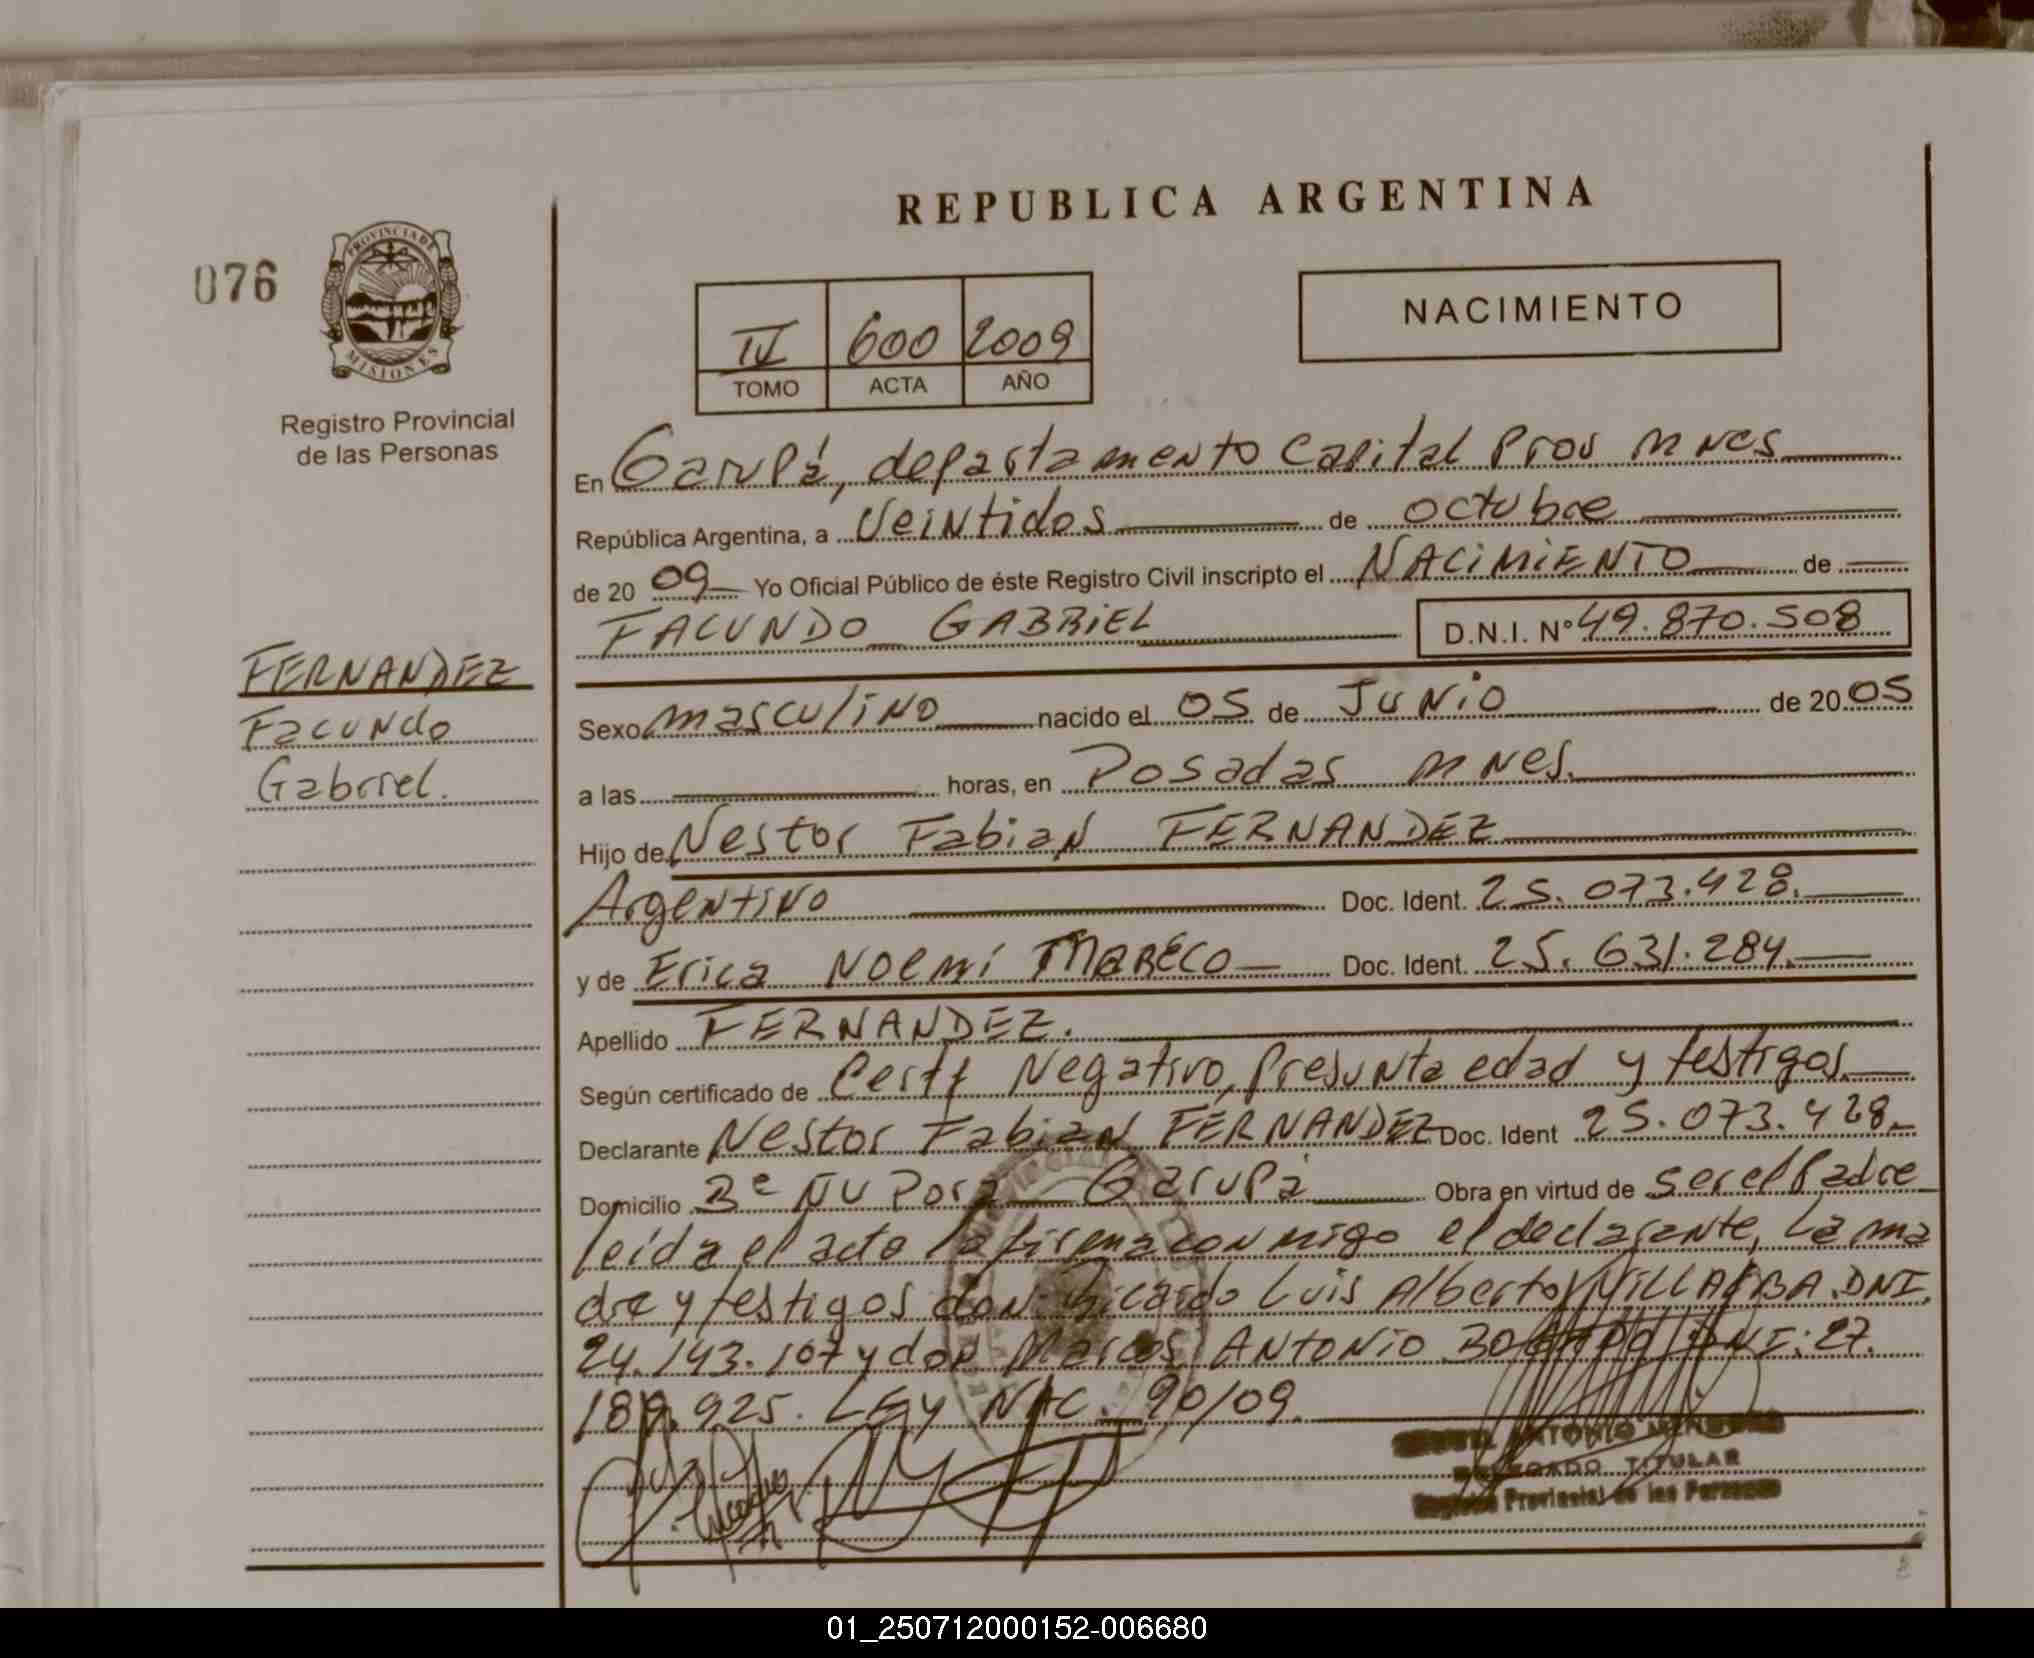 REPUBLICA ARGENTINA
076
PROVINCIA DE
MISIONES
Registro Provincial
de las Personas
NACIMIENTO
IV 600 2009
TOMO ACTA AÑO
En Garupá, departamento Capital Prov Mnes
República Argentina, a Veintidos de octubre
de 20 09 Yo Oficial Público de éste Registro Civil inscripto el NACIMIENTO de
FACUNDO GABRIEL D.N.I. N° 49.870.508
FERNANDEZ
Facundo
Gabriel.
Sexo masculino nacido el 05 de Junio de 20 05
a las horas, en Posadas Mnes.
Hijo de Nestor Fabian FERNANDEZ
Argentino Doc. Ident. 25.073.428.
y de Erica Noemi MARECO Doc. Ident. 25.631.284.
Apellido FERNANDEZ.
Según certificado de Certf Negativo, Presunta edad y testigos
Declarante Nestor Fabian FERNANDEZ Doc. Ident 25.073.428.
Domicilio Bº Ñu Porá Garupá Obra en virtud de ser el Padre
leida el acta la firma conmigo el declarante, La ma
dre y testigos don Ricardo Luis Alberto VILLALBA. DNI.
24.143.107 y don Marcos ANTONIO DNI: 27.
189.925. LEY NAC. 90/09.
ANTONIO
DELEGADO TITULAR
Registro Provincial de las Personas
01_250712000152-006680